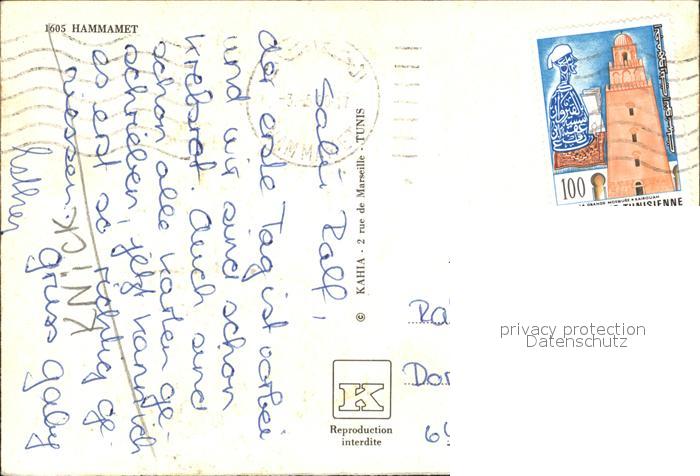 1605 HAMMAMET
Salü Ralf,
der erste Tag ist vorbei
und wir sind schon
krebsrot. Auch sind
schon alle Karten ge-
schrieben, jetzt kann ich
es erst so richtig ge-
niessen.
gruss gaby
Esther
KNICK
© KAHIA - 2 rue de Marseille - TUNIS
K
Reproduction
interdite
100
LA GRANDE MOSQUEE KAIROUAN
TUNISIENNE
Ra
Dor
privacy protection
Datenschutz